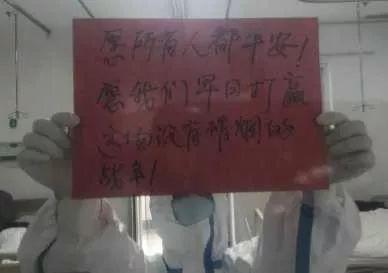 愿所有人都平安！
愿我们早日打赢
这场没有硝烟的
战争！